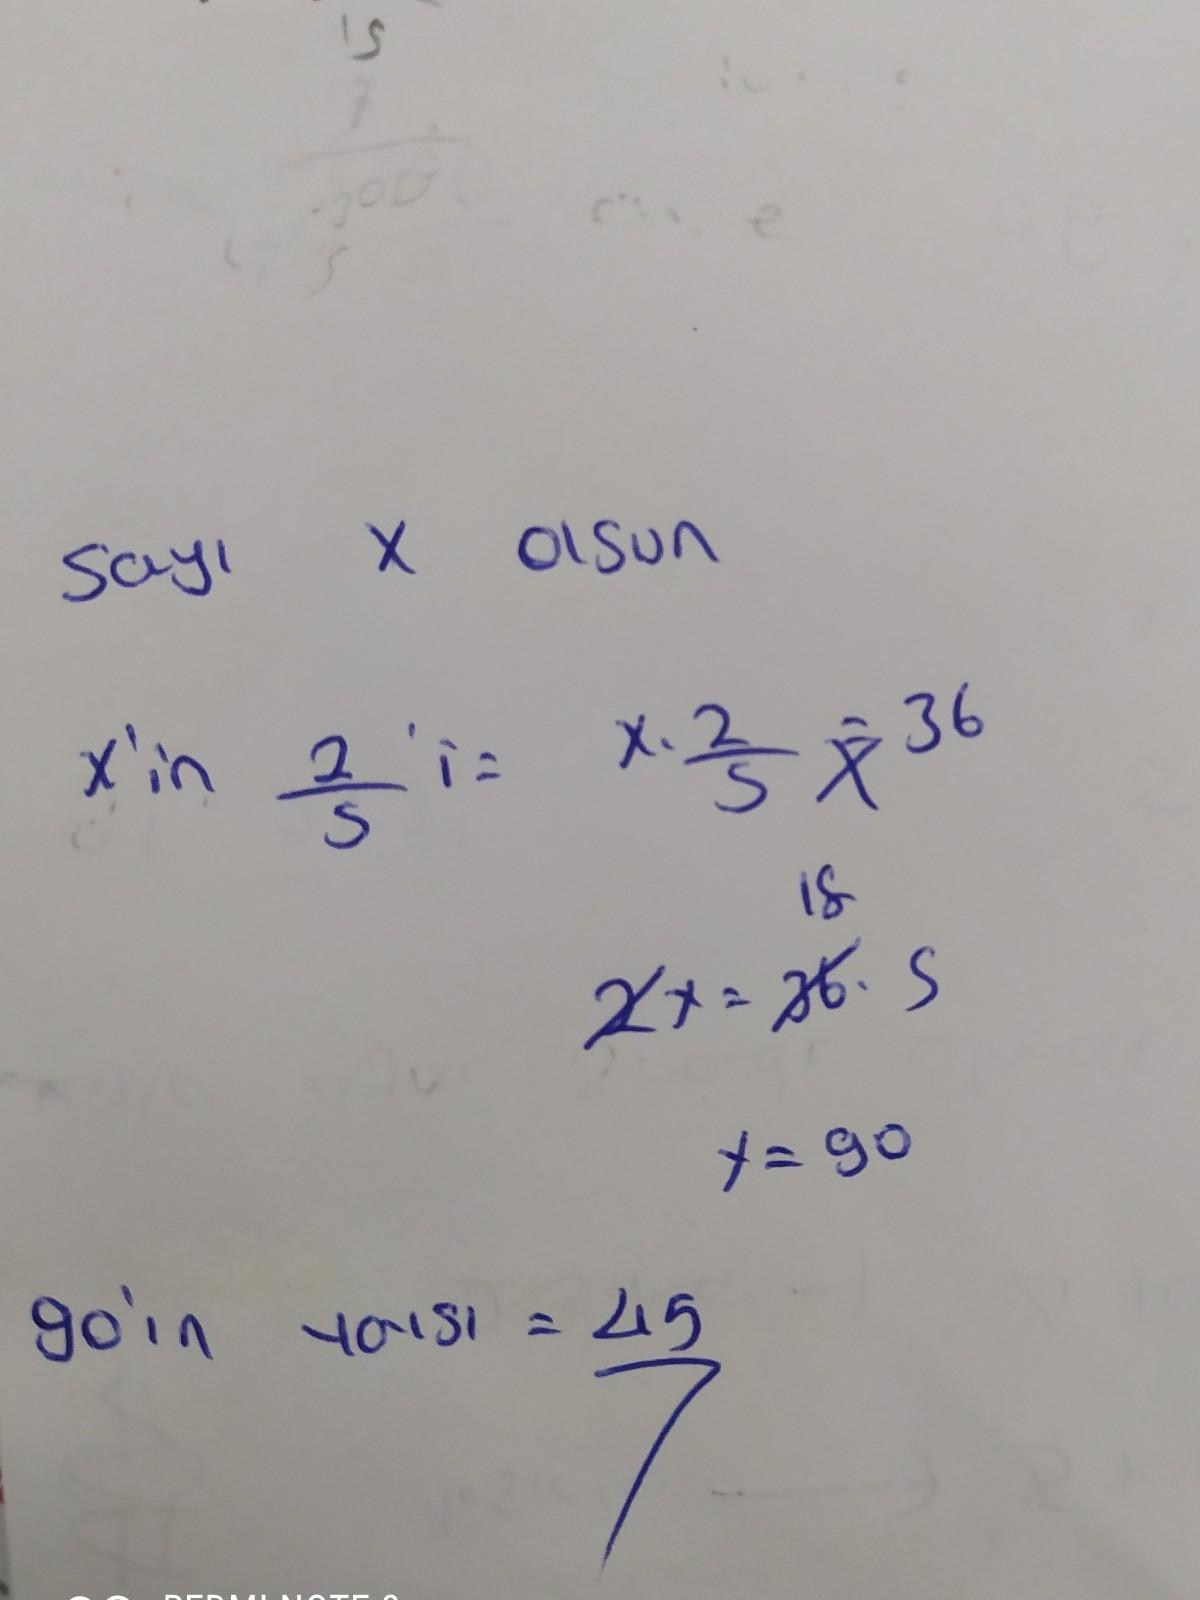 15
sayı x olsun
x'in 2/5 'i = x. 2/5 = 36
18
2x = 36. 5
x = 90
90'ın yarısı = 45
REDMI NOTE 8